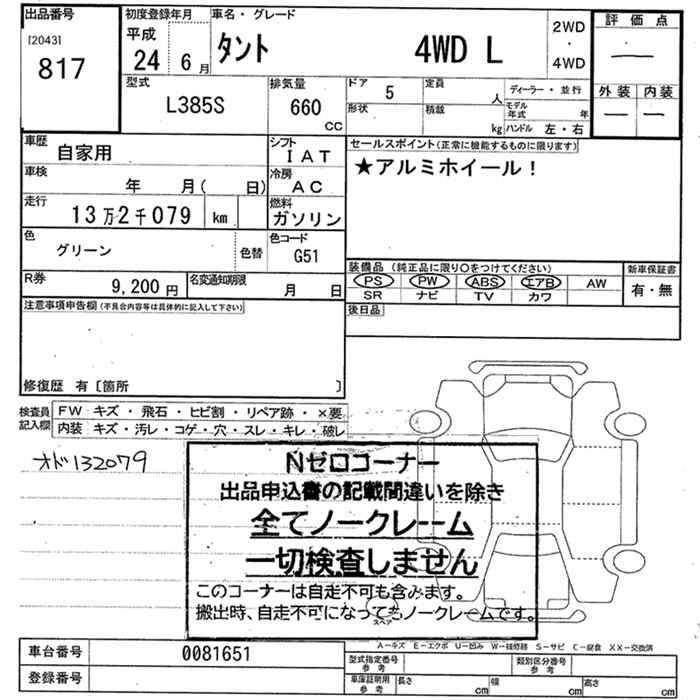 出品番号
[2043]
817
初度登録年月
平成
24 6月
車名・グレード
タント 4WD L
2WD
・
4WD
評価点
―
外装 内装
― ―
型式
L385S
排気量
660
CC
ドア 5
形状
定員 人
積載 kg
ディーラー・並行
モデル年式 年
ハンドル 左・右
車歴 自家用
シフト IAT
車検 年 月( 日)
冷房 AC
走行 13万2千079 km
燃料 ガソリン
色 グリーン
色替
色コード G51
R券 9,200円
名変通知期限 月 日
セールスポイント(正常に機能するものに限ります)
★アルミホイール!
装備品(純正品に限り○をつけてください)
PS PW ABS エアB AW
SR ナビ TV カワ
新車保証書
有・無
後日品
注意事項申告欄(不具合内容等は具体的に記入して下さい)
修復歴 有〔箇所 〕
検査員記入欄
FW キズ・飛石・ヒビ割・リペア跡・×要
内装 キズ・汚レ・コゲ・穴・スレ・キレ・破レ
オド132079
Nゼロコーナー
出品申込書の記載間違いを除き
全てノークレーム
一切検査しません
このコーナーは自走不可も含みます。
搬出時、自走不可になってもノークレームです。
スペア
A-キズ E-エクボ U-凹み W-補修跡 S-サビ C-腐食 XX-交換済
車台番号 0081651
登録番号
型式指定番号参考
類別区分番号参考
車庫証明用参考
長さ cm 幅 cm 高さ cm